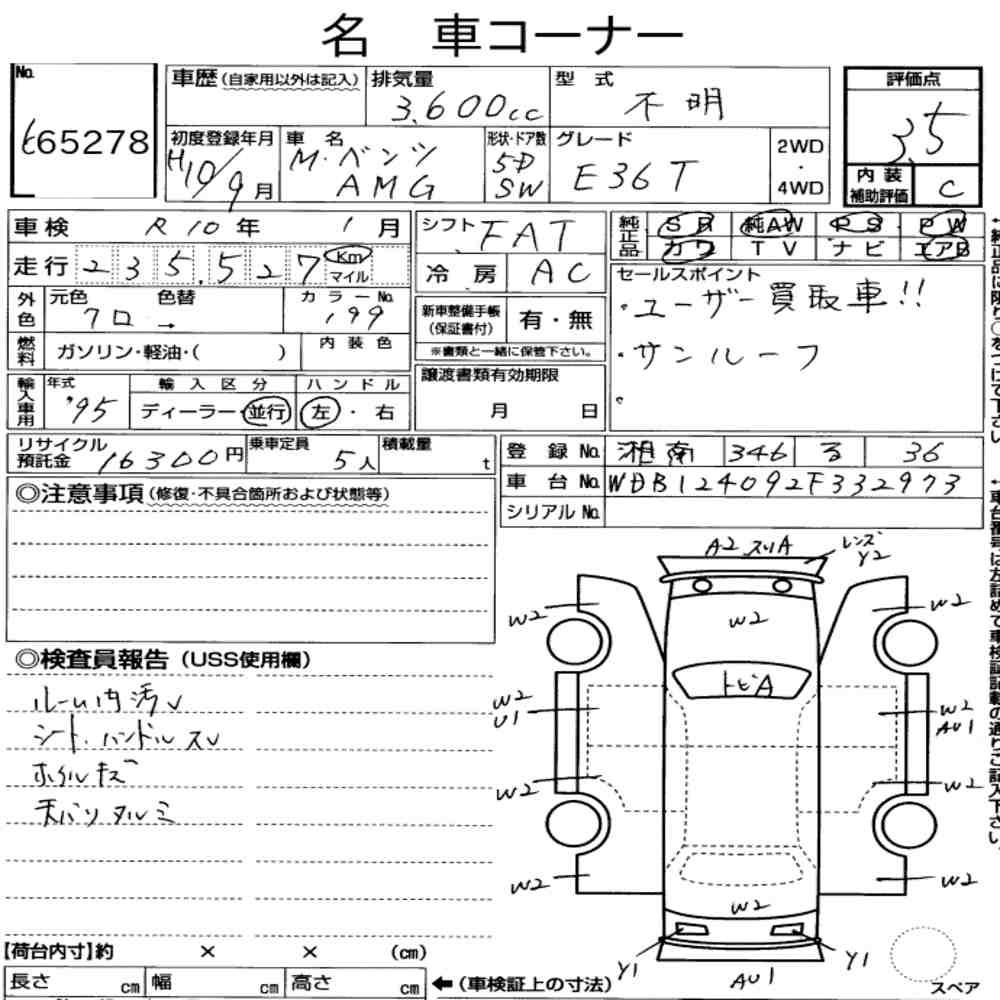 名 車コーナー
No.
65278
車歴(自家用以外は記入)
排気量
3,600cc
型 式
不明
評価点
3.5
初度登録年月
H10/9月
車 名
M・ベンツ
AMG
形状・ドア数
5D
SW
グレード
E36T
2WD
・
4WD
内 装
補助評価
C
車検 R10年 1月
シフト FAT
純正品
SR 純AW PS PW
カワ TV ナビ エアB
走行 235,527 Km
マイル
冷 房 AC
セールスポイント
・ユーザー買取車!!
・サンルーフ
外色
元色 色替
クロ →
カラーNo.
199
新車整備手帳
(保証書付)
有・無
※書類と一緒に保管下さい。
燃料
ガソリン・軽油・( )
内 装 色
譲渡書類有効期限
月 日
輸入車用
年式
'95
輸 入 区 分
ディーラー・並行
ハ ン ド ル
左・右
リサイクル
預託金 16300円
乗車定員
5人
積載量
t
登 録 No. 湘南 346 る 36
車 台 No. WDB124092F332973
シリアル No.
←純正品に限り○をつけて下さい
←車台番号は左詰めで車検証記載の通りご記入下さい。
◎注意事項(修復・不具合箇所および状態等)
◎検査員報告(USS使用欄)
ルーム内汚レ
シート・ハンドルスレ
ホイルキズ
天バリタルミ
A2 スリA
レンズ
Y2
W2
W2
W2
トビA
W2
U1
W2
AU1
W2
W2
W2
W2
W2
Y1
Y1
AU1
スペア
【荷台内寸】約 × × (cm)
長さ cm 幅 cm 高さ cm
←(車検証上の寸法)